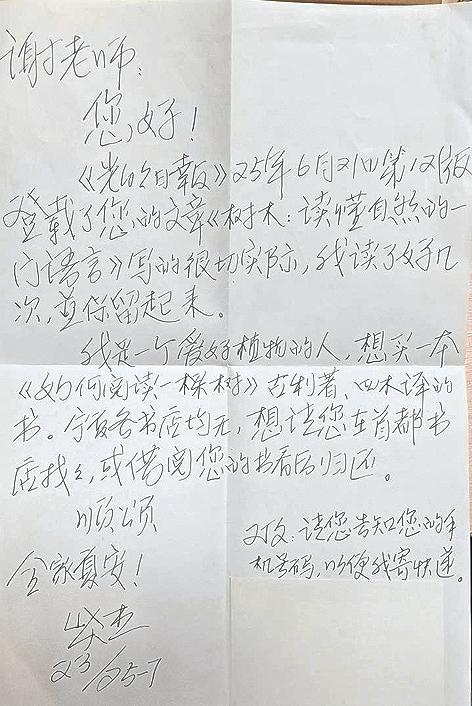 谢老师：
您好！
《光明日报》25年6月21日第12版
登载了您的文章《树木：读懂自然的一
门语言》写的很切实际，我读了好几
次，並保留起来。
我是一个爱好植物的人，想买一本
《如何阅读一棵树》古利著、四木译的
书。宁夏各书店均无，想请您在首都书
店找找，或借阅您的书看后归还。
顺颂
又及：请您告知您的手
机号码，以便我寄快递。
全家夏安！
23/25-7